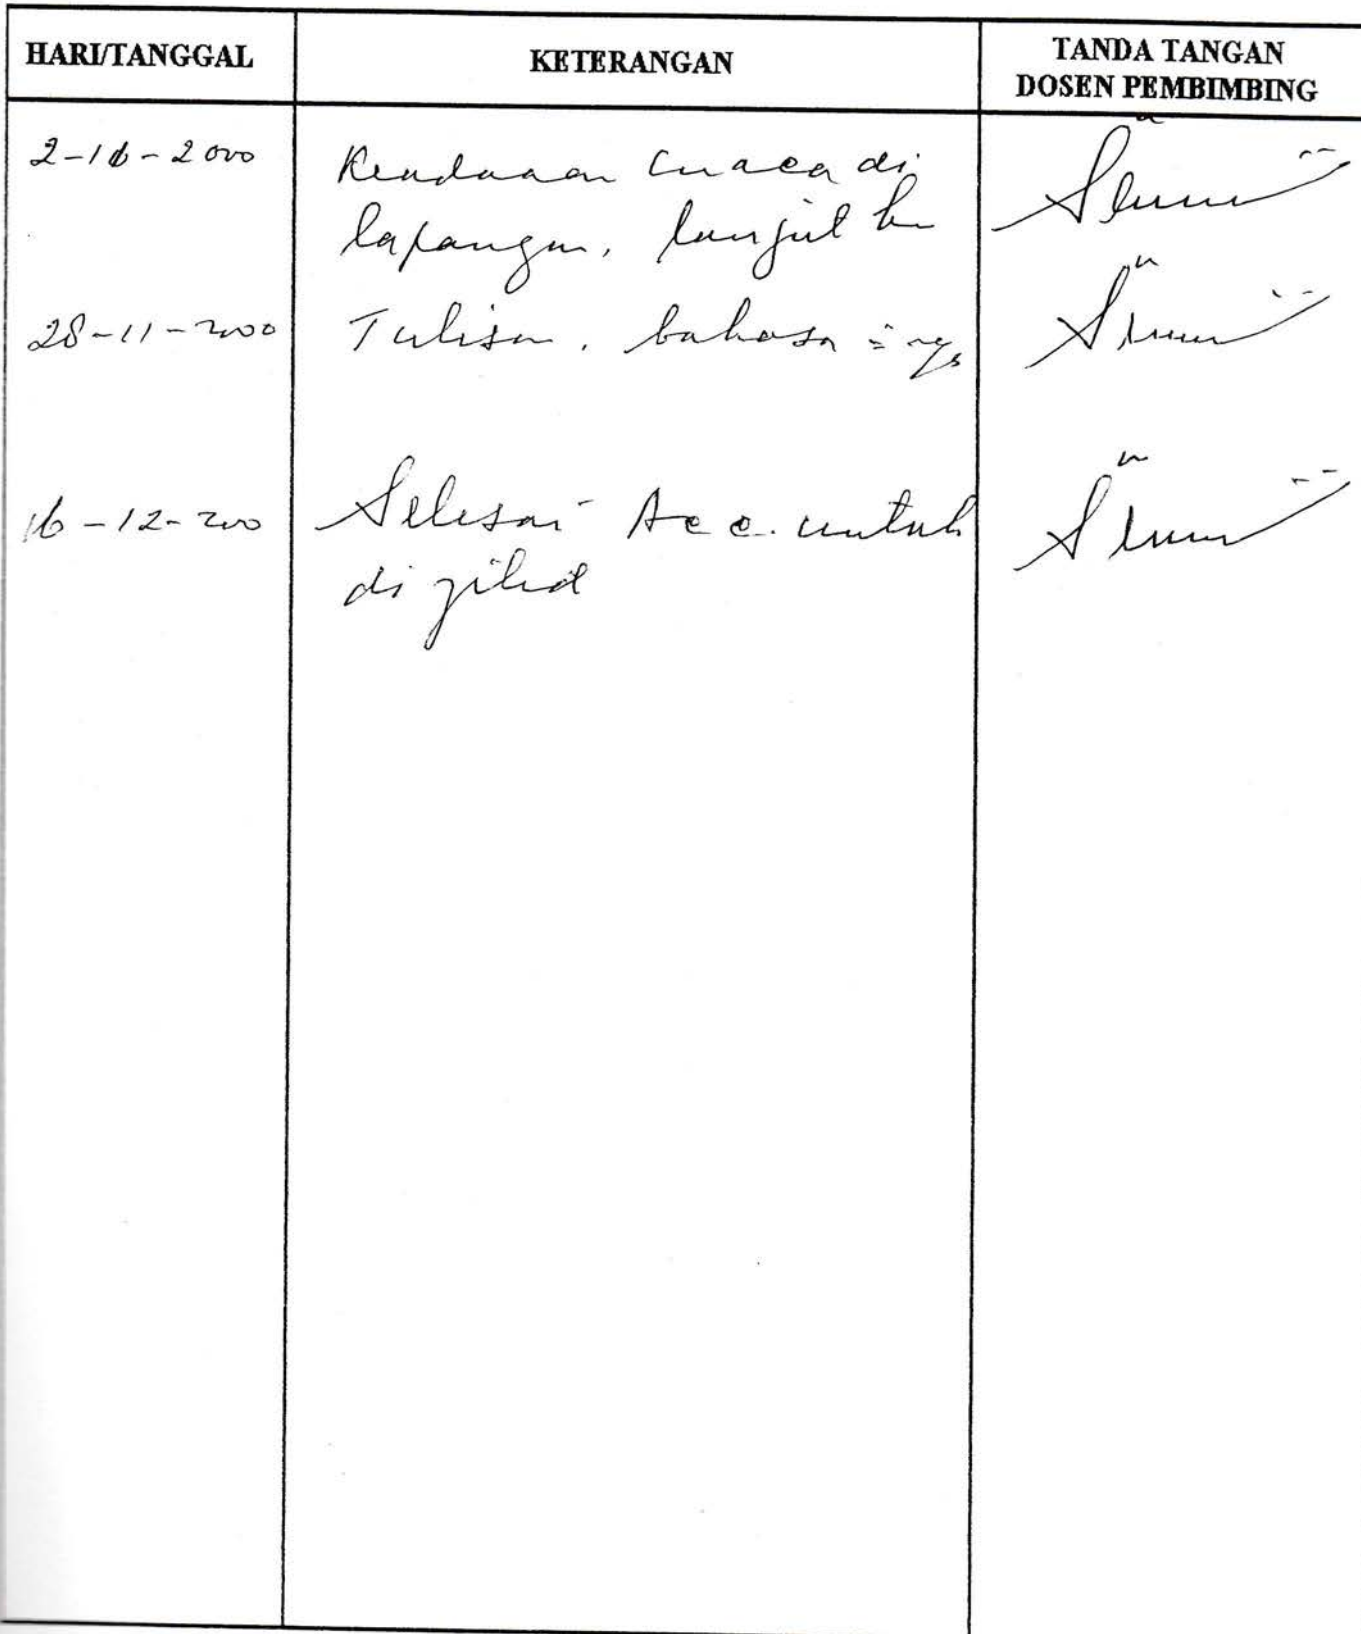 HARI/TANGGAL KETERANGAN TANDA TANGAN
DOSEN PEMBIMBING
2-10-2000 Keadaaan Cuaca di
lapangan, lanjut ke
28-11-2000 Tulisan, bahasa
16-12-200 Selesai Acc. untuk
di jilid